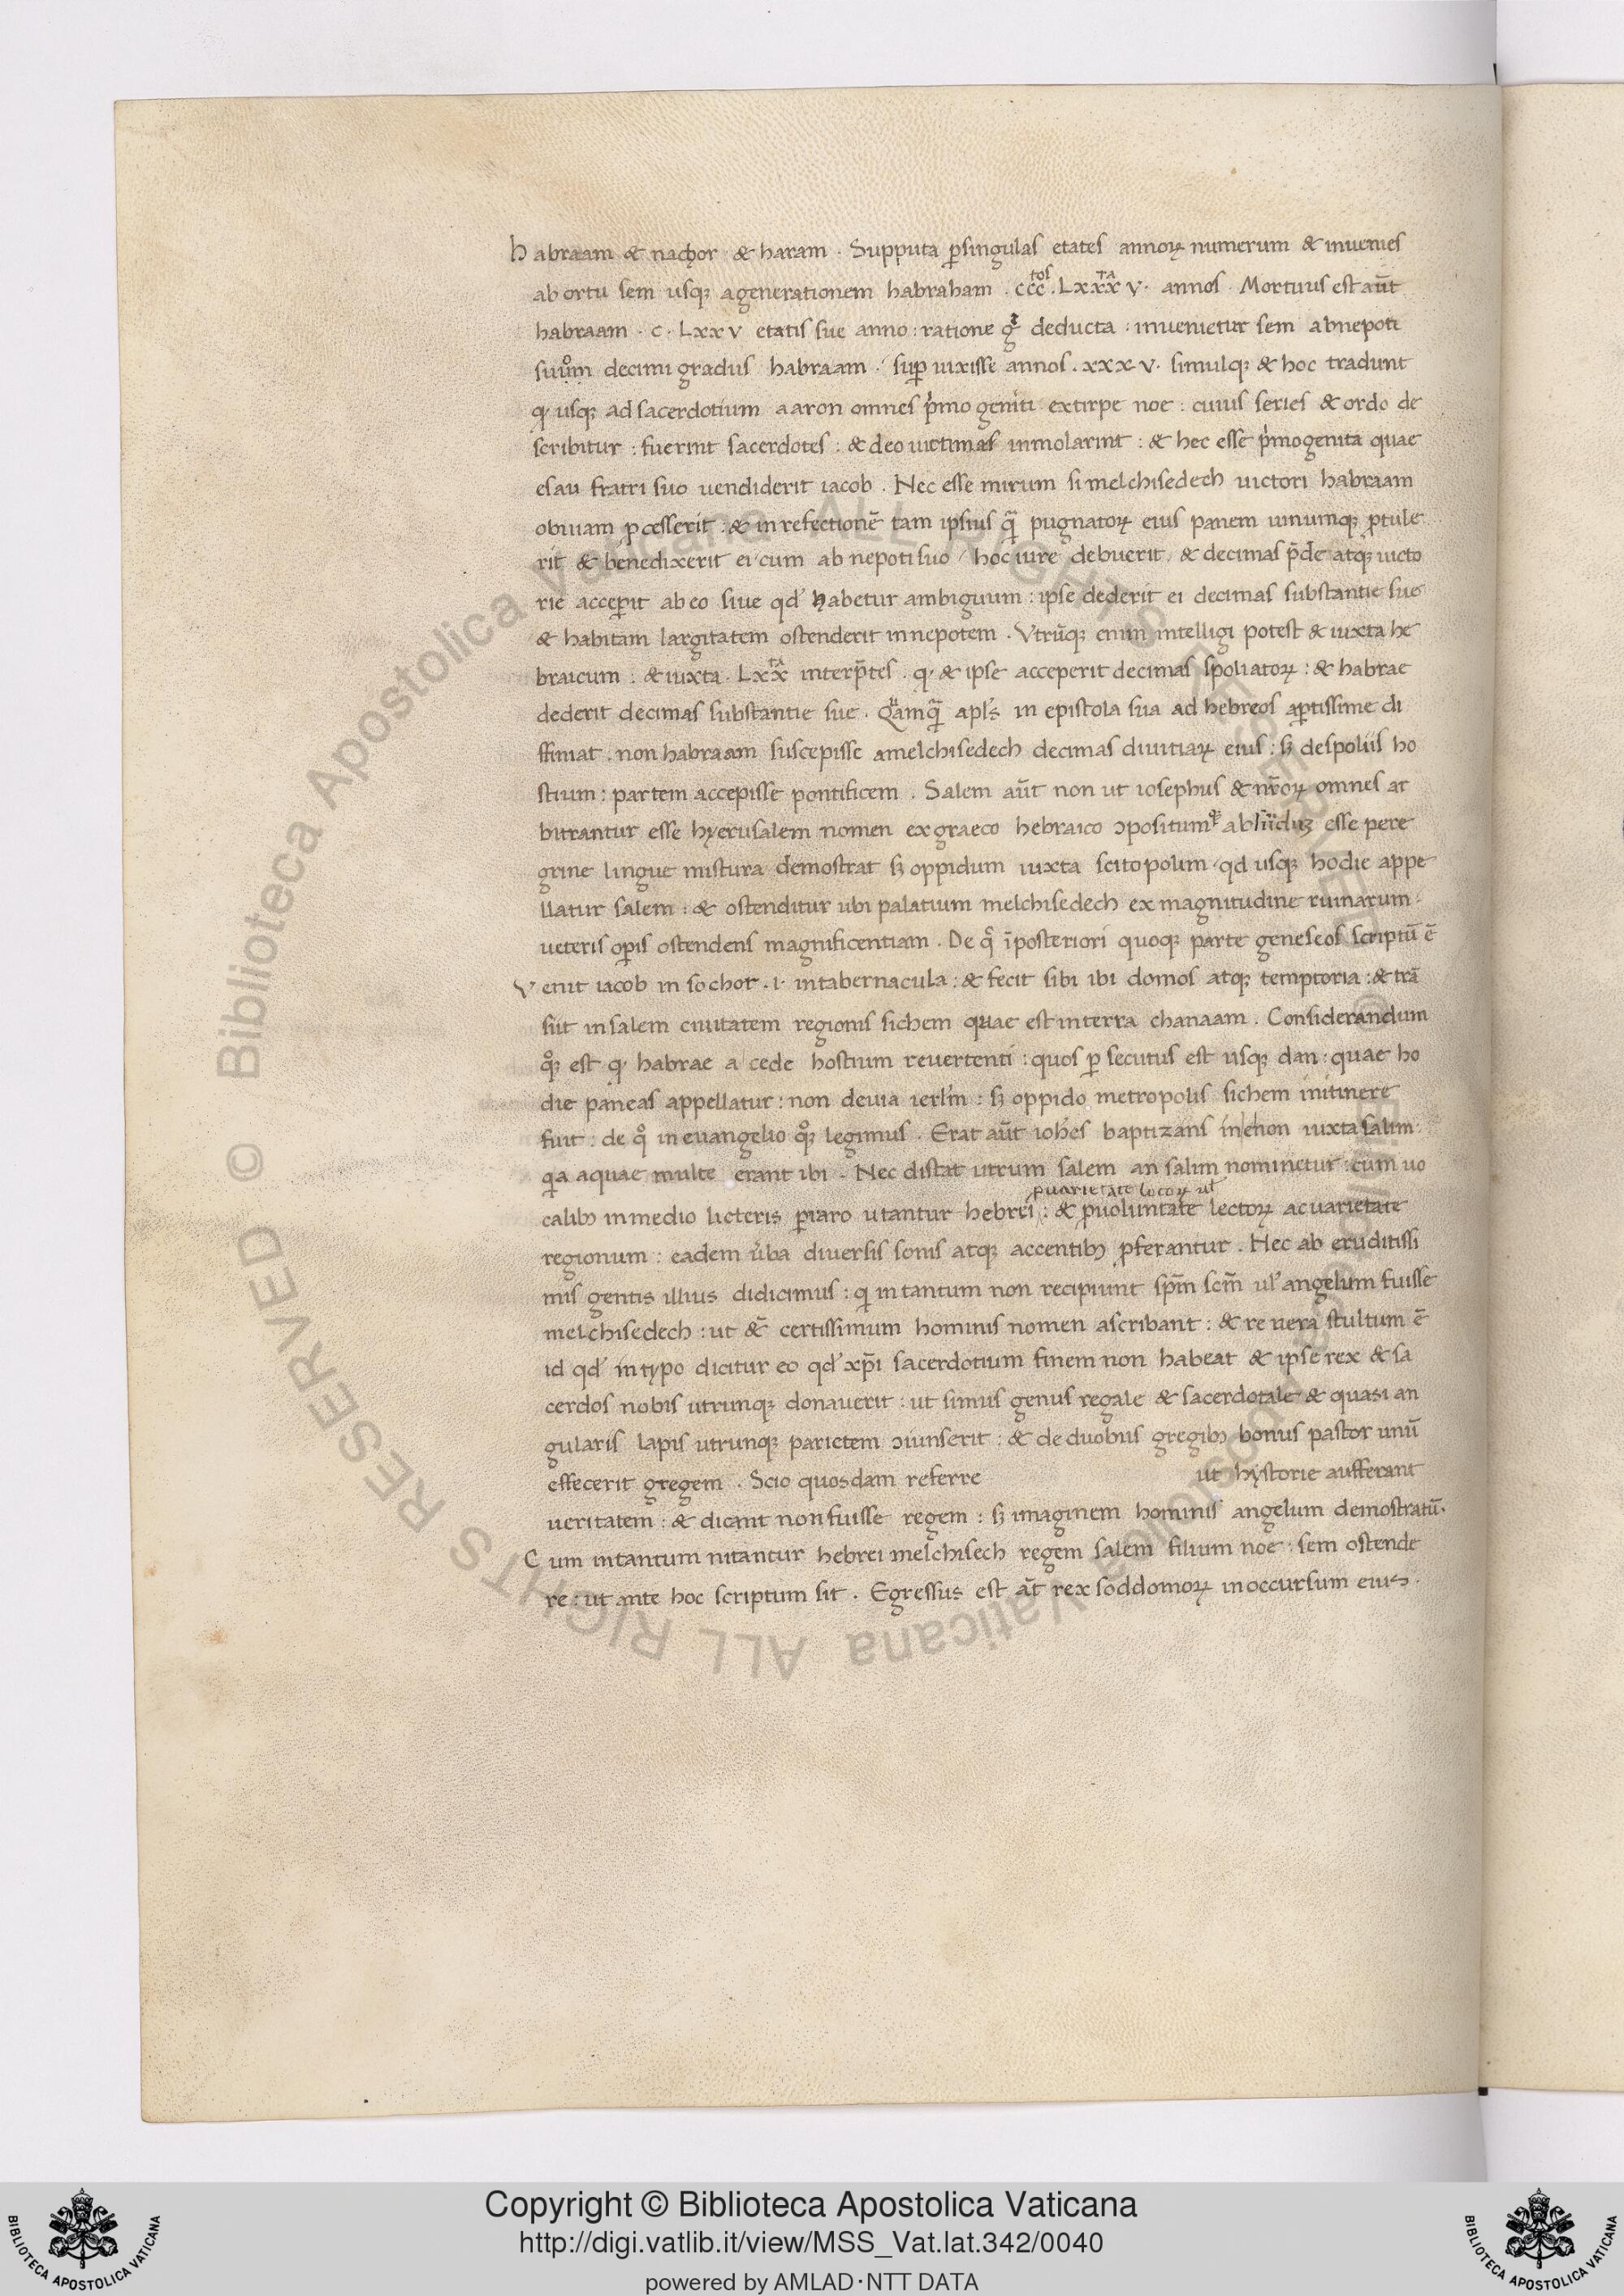 Habraam & nachor & haram . Supputa p̱singulas etates annoꝝ numerum & inuenies
ab ortu sem usqꝫ agenerationem habraham . ccc^tos . Lxxx^ta v . annos . Mortuus est aūt
habraam . c . Lxxv etatis sue anno : ratione gͥ deducta : inuenietur sem abnepoti
suuͦm decimi gradus habraam . sup̱ uixisse annos . xxxv . simulqꝫ & hoc tradunt
ꝙ usqꝫ ad sacerdotium aaron omnes pͥmo geniti extirpe noe : cuius series & ordo de
scribitur : fuerint sacerdotes : & deo uictimas inmolarint : & hec esse pͥmogenita quae
esau fratri suo uendiderit iacob . Nec esse mirum si melchisedech uictori habraam
obuiam ꝓcesserit : & in refectionē tam ipsius qᷓ pugnatoꝝ eius panem uinumqꝫ ꝓtule
rit & benedixerit ei / cum ab nepoti suo / hoc iure debuerit & decimas p̄de atqꝫ uicto
rie accep̱it ab eo siue qd̓ habetur ambiguum : ipse dederit ei decimas substantie sue
& habitam largitatem ostenderit in nepotem . Vtrūqꝫ enim intelligi potest & iuxta he
braicum : & iuxta . Lxx^ta interp̄tes . ꝙ & ipse acceperit decimas spoliatoꝝ : & habrae
dederit decimas substantie sue . Qᷓamqᷓ apl̓s in epistola sua ad hebreos ap̱tissime di
ffiniat . non habraam suscepisse amelchisedech decimas diuitiaꝝ eius : sꝫ despoliis ho
stium : partem accepisse pontificem . Salem aūt non ut iosephus & nr̄oꝝ omnes ar
bitrantur esse hyerusalem nomen exgraeco hebraico ↄpositum qͩ absurduꝫ esse pere
grine lingue mistura demostrat sꝫ oppidum iuxta scitopolim qd usqꝫ hodie appe
llatur salem : & ostenditur ubi palatium melchisedech ex magnitudine ruinarum
ueteris op̱is ostendens magnificentiam . De qͦ ī posteriori quoqꝫ parte geneseos scriptū ē
Venit iacob in sochot . i . in tabernacula : & fecit sibi ibi domos atqꝫ temptoria : & trā
siit in salem ciuitatem regionis sichem quae est in terra chanaam . Considerandum
qͦqꝫ est ꝙ habrae a cede hostium reuertenti : quos p̱ secutus est usqꝫ dan : quae ho
die paneas appellatur : non deuia ierl̓m : sꝫ oppido metropolis sichem initinere
fuit : de qͦ in euangelio qͦqꝫ legimus . Erat aūt ioh̓es baptizans in ehon iuxta salim
qͥa aquae multe erant ibi . Nec distat utrum salem an salim nominetur : cum uo
p̱uarietate locoꝝ ul̓
calibꝫ in medio licteris p̱raro utantur hebrei : & p̱uoluntate lectoꝝ ac uarietate
regionum : eadem u̓ba diuersis sonis atqꝫ accentibꝫ ꝓferantur . Hec ab eruditissi
mis gentis illius didicimus : qͥ in tantum non recipiunt sp̄m scm̄ ul̓ angelum fuisse
melchisedech : ut &c̄ certissimum hominis nomen ascribant : & re uera stultum ē
id qd̓ in typo dicitur eo qd̓ xp̄i sacerdotium finem non habeat & ipse rex & sa
cerdos nobis utrunqꝫ donauerit : ut simus genus regale & sacerdotale & quasi an
gularis lapis utrunqꝫ parietem ↄiunserit : & de duobus gregibꝫ bonus pastor unū
effecerit gregem . Scio quosdam referre ut hystorie aufferant
ueritatem : & dicant non fuisse regem : sꝫ imaginem hominis angelum demostratū .
Cum intantum nitantur hebrei melchisech regem salem filium noe : sem ostende
re : ut ante hoc scriptum sit . Egressus est āt rex soddomoꝝ in occursum eius .
© Biblioteca Apostolica Vaticana ALL RIGHTS RESERVED © Biblioteca Apostolica Vaticana ALL RIGHTS RESERVED
BIBLIOTECA APOSTOLICA VATICANA
Copyright © Biblioteca Apostolica Vaticana
http://digi.vatlib.it/view/MSS_Vat.lat.342/0040
powered by AMLAD·NTT DATA
BIBLIOTECA APOSTOLICA VATICANA